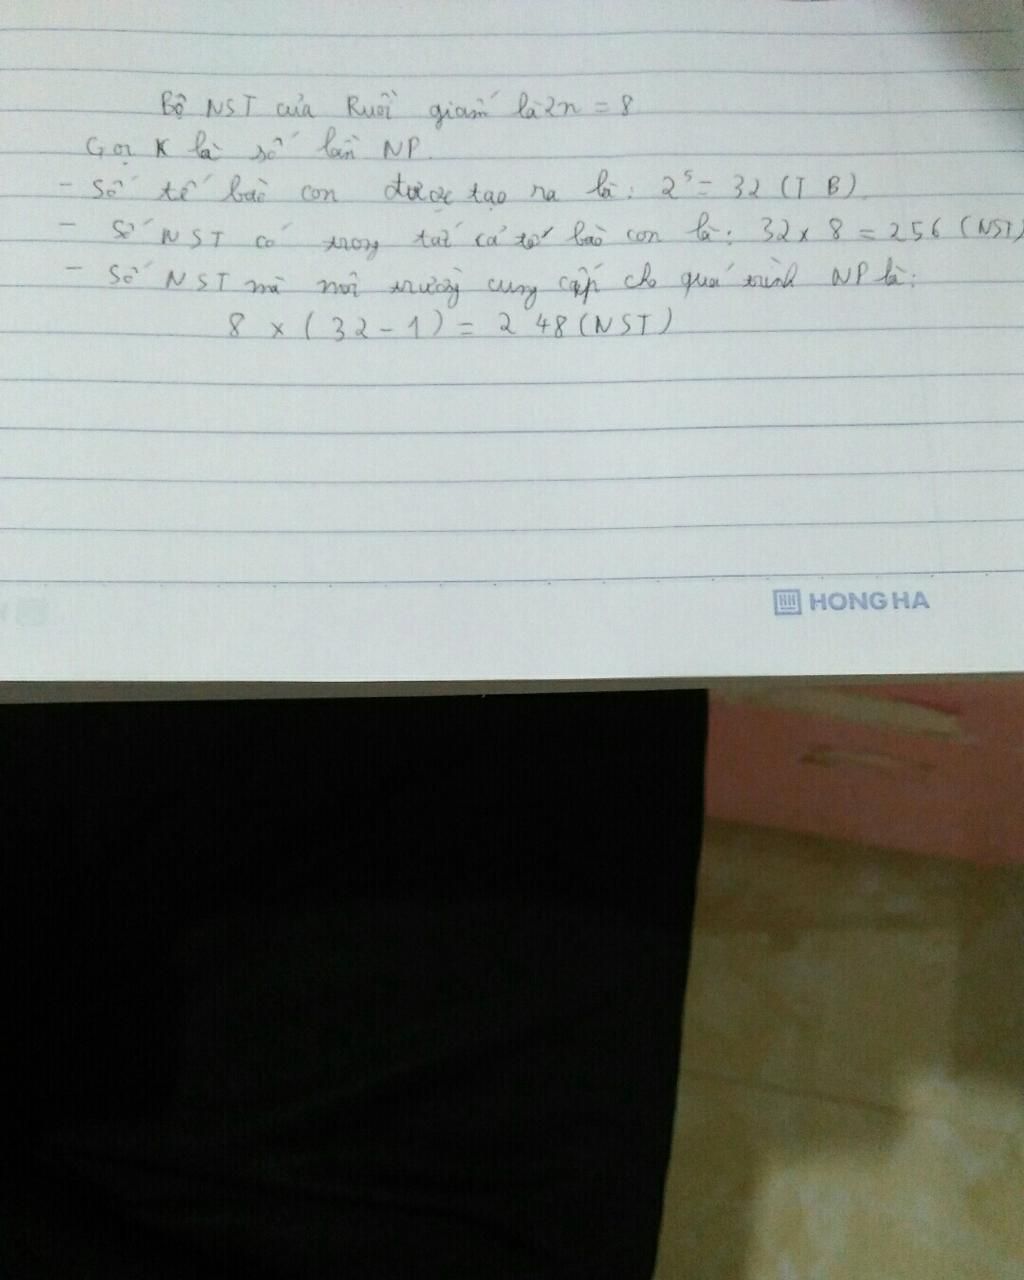 Bộ NST của Ruồi giấm là 2n = 8
Gọi K là số lần NP.
- Số tế bào con được tạo ra là: 2⁵ = 32 (TB)
- Số NST có trong tất cả tế bào con là: 32 x 8 = 256 (NST)
- Số NST mà môi trường cung cấp cho quá trình NP là:
8 x (32 - 1) = 248 (NST)
HONG HA